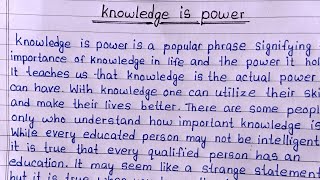 knowledge is power
Knowledge is power is a popular phrase signifying
importance of knowledge in life and the power it hol
It teaches us that knowledge is the actual power
can have. With knowledge one can utilize their ski
and make their lives better. There are some people
only who understand how important knowledge is
While every educated person may not be intelligent
it is true that every qualified person has an
education. It may seem like a strange statement
but it is true when